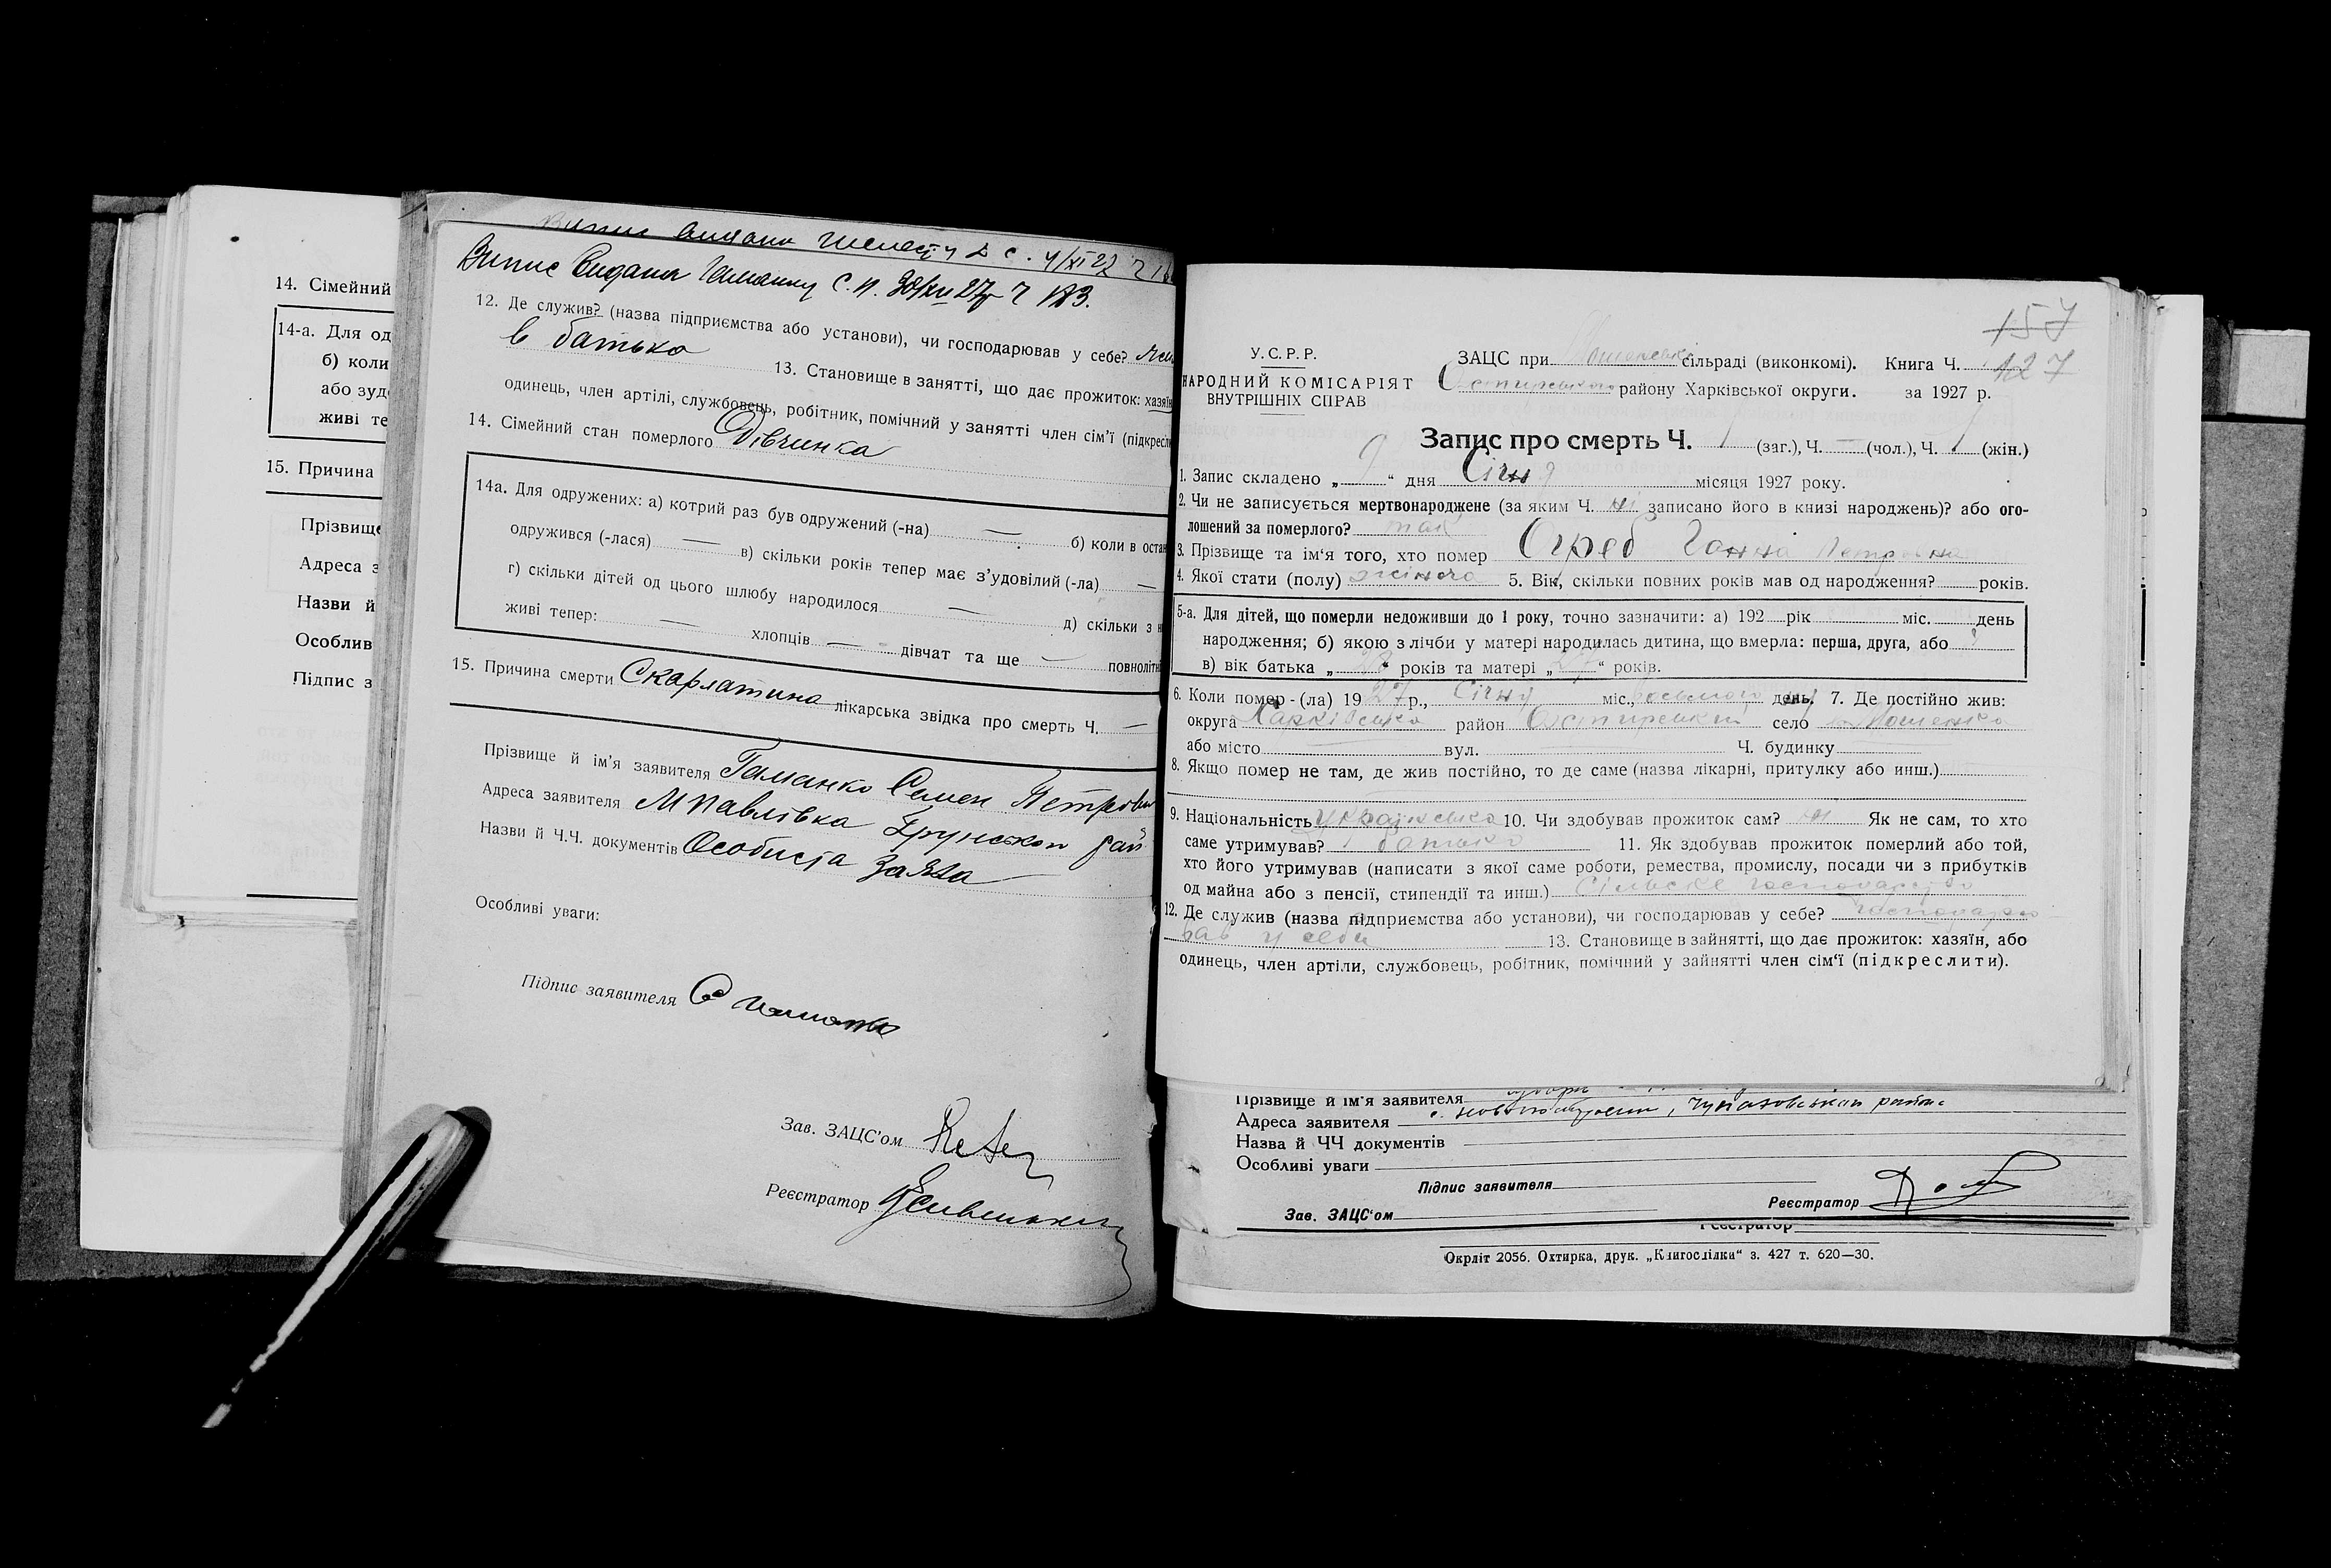 14. Сімейний
14-а. Для од
б) коли
або зуд
живі те
15. Причина
Прізвище
Адреса з
Назви й
Особлив
Підпис з
Випис видана
Випис видана Гаманку С. П. 27р Ч
12. Де служив? (назва підприємства або установи), чи господарював у себе?
в батька
13. Становище в занятті, що дає прожиток: хазяїн
одинець, член артілі, службовець, робітник, помічний у занятті член сім’ї (підкресли
14. Сімейний стан померлого Дівчинка
14а. Для одружених: а) котрий раз був одружений (-на) — б) коли в остан
одружився (-лася) — в) скільки років тепер має з’удовілий (-ла) —
г) скільки дітей од цього шлюбу народилося — д) скільки з н
живі тепер: — хлопців — дівчат та ще — повнолітн
15. Причина смерти Скарлатина лікарська звідка про смерть Ч. —
Прізвище й ім’я заявителя Гаманко Семен Петрови
Адреса заявителя М Павлівка Грунськон рай
Назви й Ч.Ч. документів Особиста Заява
Особливі уваги:
Підпис заявителя С
Зав. ЗАЦС’ом
Реєстратор
157
У.С.Р.Р.
НАРОДНИЙ КОМІСАРІЯТ
ВНУТРІШНІХ СПРАВ
ЗАЦС при сільраді (виконкомі). Книга Ч. 127
району Харківської округи. за 1927 р.
Запис про смерть Ч. 1 (заг.), Ч. — (чол.), Ч. 1 (жін.)
1. Запис складено „ 9 “ дня Січня місяця 1927 року.
2. Чи не записується мертвонароджене (за яким Ч. ні записано його в книзі народжень)? або ого-
лошений за померлого? так
3. Прізвище та ім‘я того, хто помер Огреб Ганна Петровна
4. Якої стати (полу) жіноча 5. Вік, скільки повних років мав од народження? років.
5-а. Для дітей, що померли недоживши до 1 року, точно зазначити: а) 192 рік міс. день
народження; б) якою з лічби у матері народилась дитина, що вмерла: перша, друга, або
в) вік батька „ “ років та матері „ 27 “ років.
6. Коли помер - (ла) 1927 р., Січня міс., восьмого день. 7. Де постійно жив:
округа Харківська район село
або місто вул. Ч. будинку
8. Якщо помер не там, де жив постійно, то де саме (назва лікарні, притулку або инш.)
9. Національність українська 10. Чи здобував прожиток сам? ні Як не сам, то хто
саме утримував? батько 11. Як здобував прожиток померлий або той,
хто його утримував (написати з якої саме роботи, ремества, промислу, посади чи з прибутків
од майна або з пенсії, стипендії та инш.) сільське господарство
12. Де служив (назва підприємства або установи), чи господарював у себе? господарю
вав у себе 13. Становище в зайнятті, що дає прожиток: хазяїн, або
одинець, член артіли, службовець, робітник, помічний у зайнятті член сім‘ї (підкреслити).
Прізвище й ім‘я заявителя
Адреса заявителя
Назва й ЧЧ документів
Особливі уваги
Підпис заявителя
Реєстратор
Зав. ЗАЦС‘ом
Реєстратор
Окрліт 2056. Охтирка, друк. „Книгоспілка“ з. 427 т. 620—30.